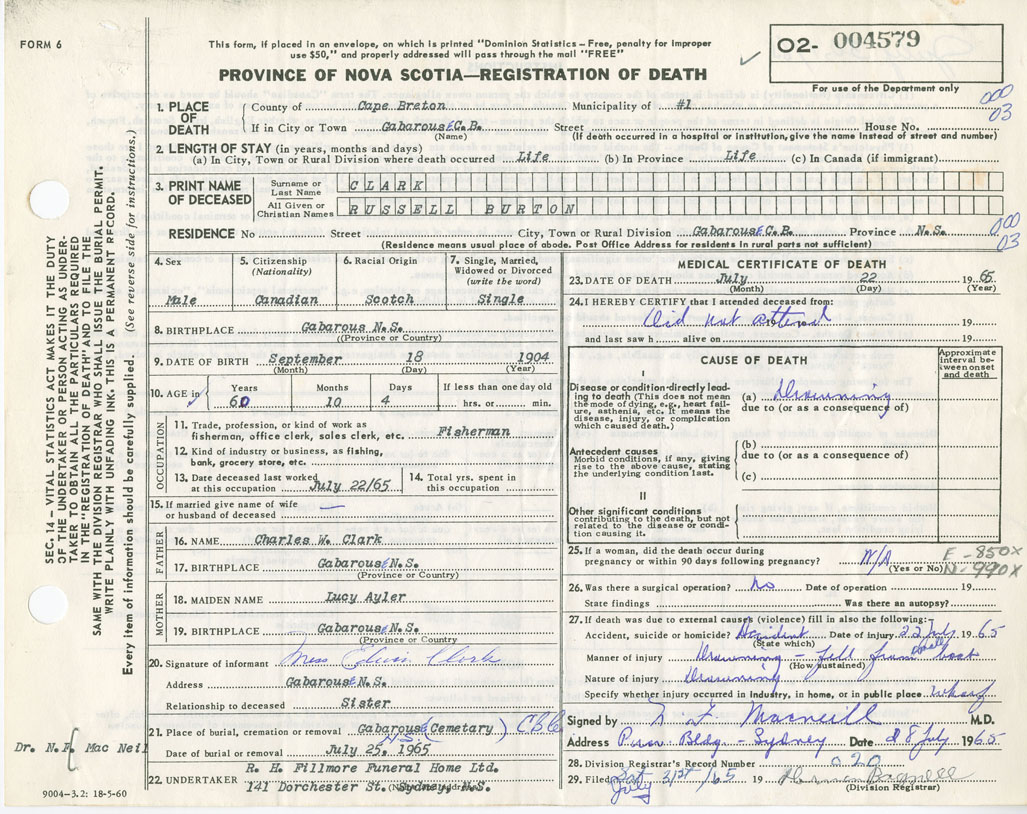 FORM 6
This form, if placed in an envelope, on which is printed "Dominion Statistics – Free, penalty for improper
use $50," and properly addressed will pass through the mail "FREE"
PROVINCE OF NOVA SCOTIA—REGISTRATION OF DEATH
O2- 004579
For use of the Department only
000
03
1. PLACE OF DEATH
County of Cape Breton Municipality of #1
If in City or Town Gabarouse C.B. Street House No.
(Name) (If death occurred in a hospital or institution, give the name instead of street and number)
2. LENGTH OF STAY (in years, months and days)
(a) In City, Town or Rural Division where death occurred Life (b) In Province Life (c) In Canada (if immigrant)
3. PRINT NAME OF DECEASED
Surname or Last Name CLARK
All Given or Christian Names RUSSELL BURTON
RESIDENCE No Street City, Town or Rural Division Gabarouse C.B. Province N.S.
(Residence means usual place of abode. Post Office Address for residents in rural parts not sufficient)
000
03
SEC. 14 – VITAL STATISTICS ACT MAKES IT THE DUTY
OF THE UNDERTAKER OR PERSON ACTING AS UNDER-
TAKER TO OBTAIN ALL THE PARTICULARS REQUIRED
IN THE "REGISTRATION OF DEATH" AND FILE THE
SAME WITH THE DIVISION REGISTRAR WHO SHALL ISSUE THE BURIAL PERMIT.
WRITE PLAINLY WITH UNFADING INK. THIS IS A PERMANENT RECORD.
Every item of information should be carefully supplied. (See reverse side for instructions.)
4. Sex
Male
5. Citizenship
(Nationality)
Canadian
6. Racial Origin
Scotch
7. Single, Married,
Widowed or Divorced
(write the word)
Single
8. BIRTHPLACE Gabarous N.S.
(Province or Country)
9. DATE OF BIRTH September 18 1904
(Month) (Day) (Year)
10. AGE in
Years Months Days If less than one day old
60 10 4 hrs. or min.
OCCUPATION
11. Trade, profession, or kind of work as
fisherman, office clerk, sales clerk, etc. Fisherman
12. Kind of industry or business, as fishing,
bank, grocery store, etc.
13. Date deceased last worked
at this occupation July 22/65
14. Total yrs. spent in
this occupation
15. If married give name of wife
or husband of deceased —
FATHER
16. NAME Charles W. Clark
17. BIRTHPLACE Gabarouse N.S.
(Province or Country)
MOTHER
18. MAIDEN NAME Lucy Ayler
19. BIRTHPLACE Gabarouse N.S.
(Province or Country
20. Signature of informant Miss Clark
Address Gabarouse N.S.
Relationship to deceased Sister
21. Place of burial, cremation or removal Gabarouse Cemetary) CBC
N.S.
Date of burial or removal July 25, 1965
22. UNDERTAKER R. H. Fillmore Funeral Home Ltd.
141 Dorchester St. Sydney, N.S.
Dr. N.F. Mac Neil
9004–3.2: 18-5-60
MEDICAL CERTIFICATE OF DEATH
23. DATE OF DEATH July 22 1965
(Month) (Day) (Year)
24. I HEREBY CERTIFY that I attended deceased from:
Did not attend 19 19
and last saw h alive on 19
CAUSE OF DEATH
Approximate
interval be-
tween onset
and death
I
Disease or condition directly lead-
ing to death (This does not mean
the mode of dying, e.g., heart fail-
ure, asthenia, etc. It means the
disease, injury, or complication
which caused death.)
(a) Drowning
due to (or as a consequence of)
Antecedent causes
Morbid conditions, if any, giving
rise to the above cause, stating
the underlying condition last.
(b)
due to (or as a consequence of)
(c)
II
Other significant conditions
contributing to the death, but not
related to the disease or condi-
tion causing it.
25. If a woman, did the death occur during
pregnancy or within 90 days following pregnancy? N/A
(Yes or No)
E - 850X
N - 990X
26. Was there a surgical operation? No Date of operation 19
State findings Was there an autopsy?
27. If death was due to external causes (violence) fill in also the following:
Accident, suicide or homicide? Accident Date of injury 22 July 1965
(State which)
Manner of injury Drowning – fell from boat
(How sustained)
Nature of injury Drowning
Specify whether injury occurred in industry, in home, or in public place Wharf
Signed by N. F. Macneill M.D.
Address Bldg – Sydney Date 28 July 1965
28. Division Registrar's Record Number 020
29. Filed Sat July 31st /65 19
(Division Registrar)